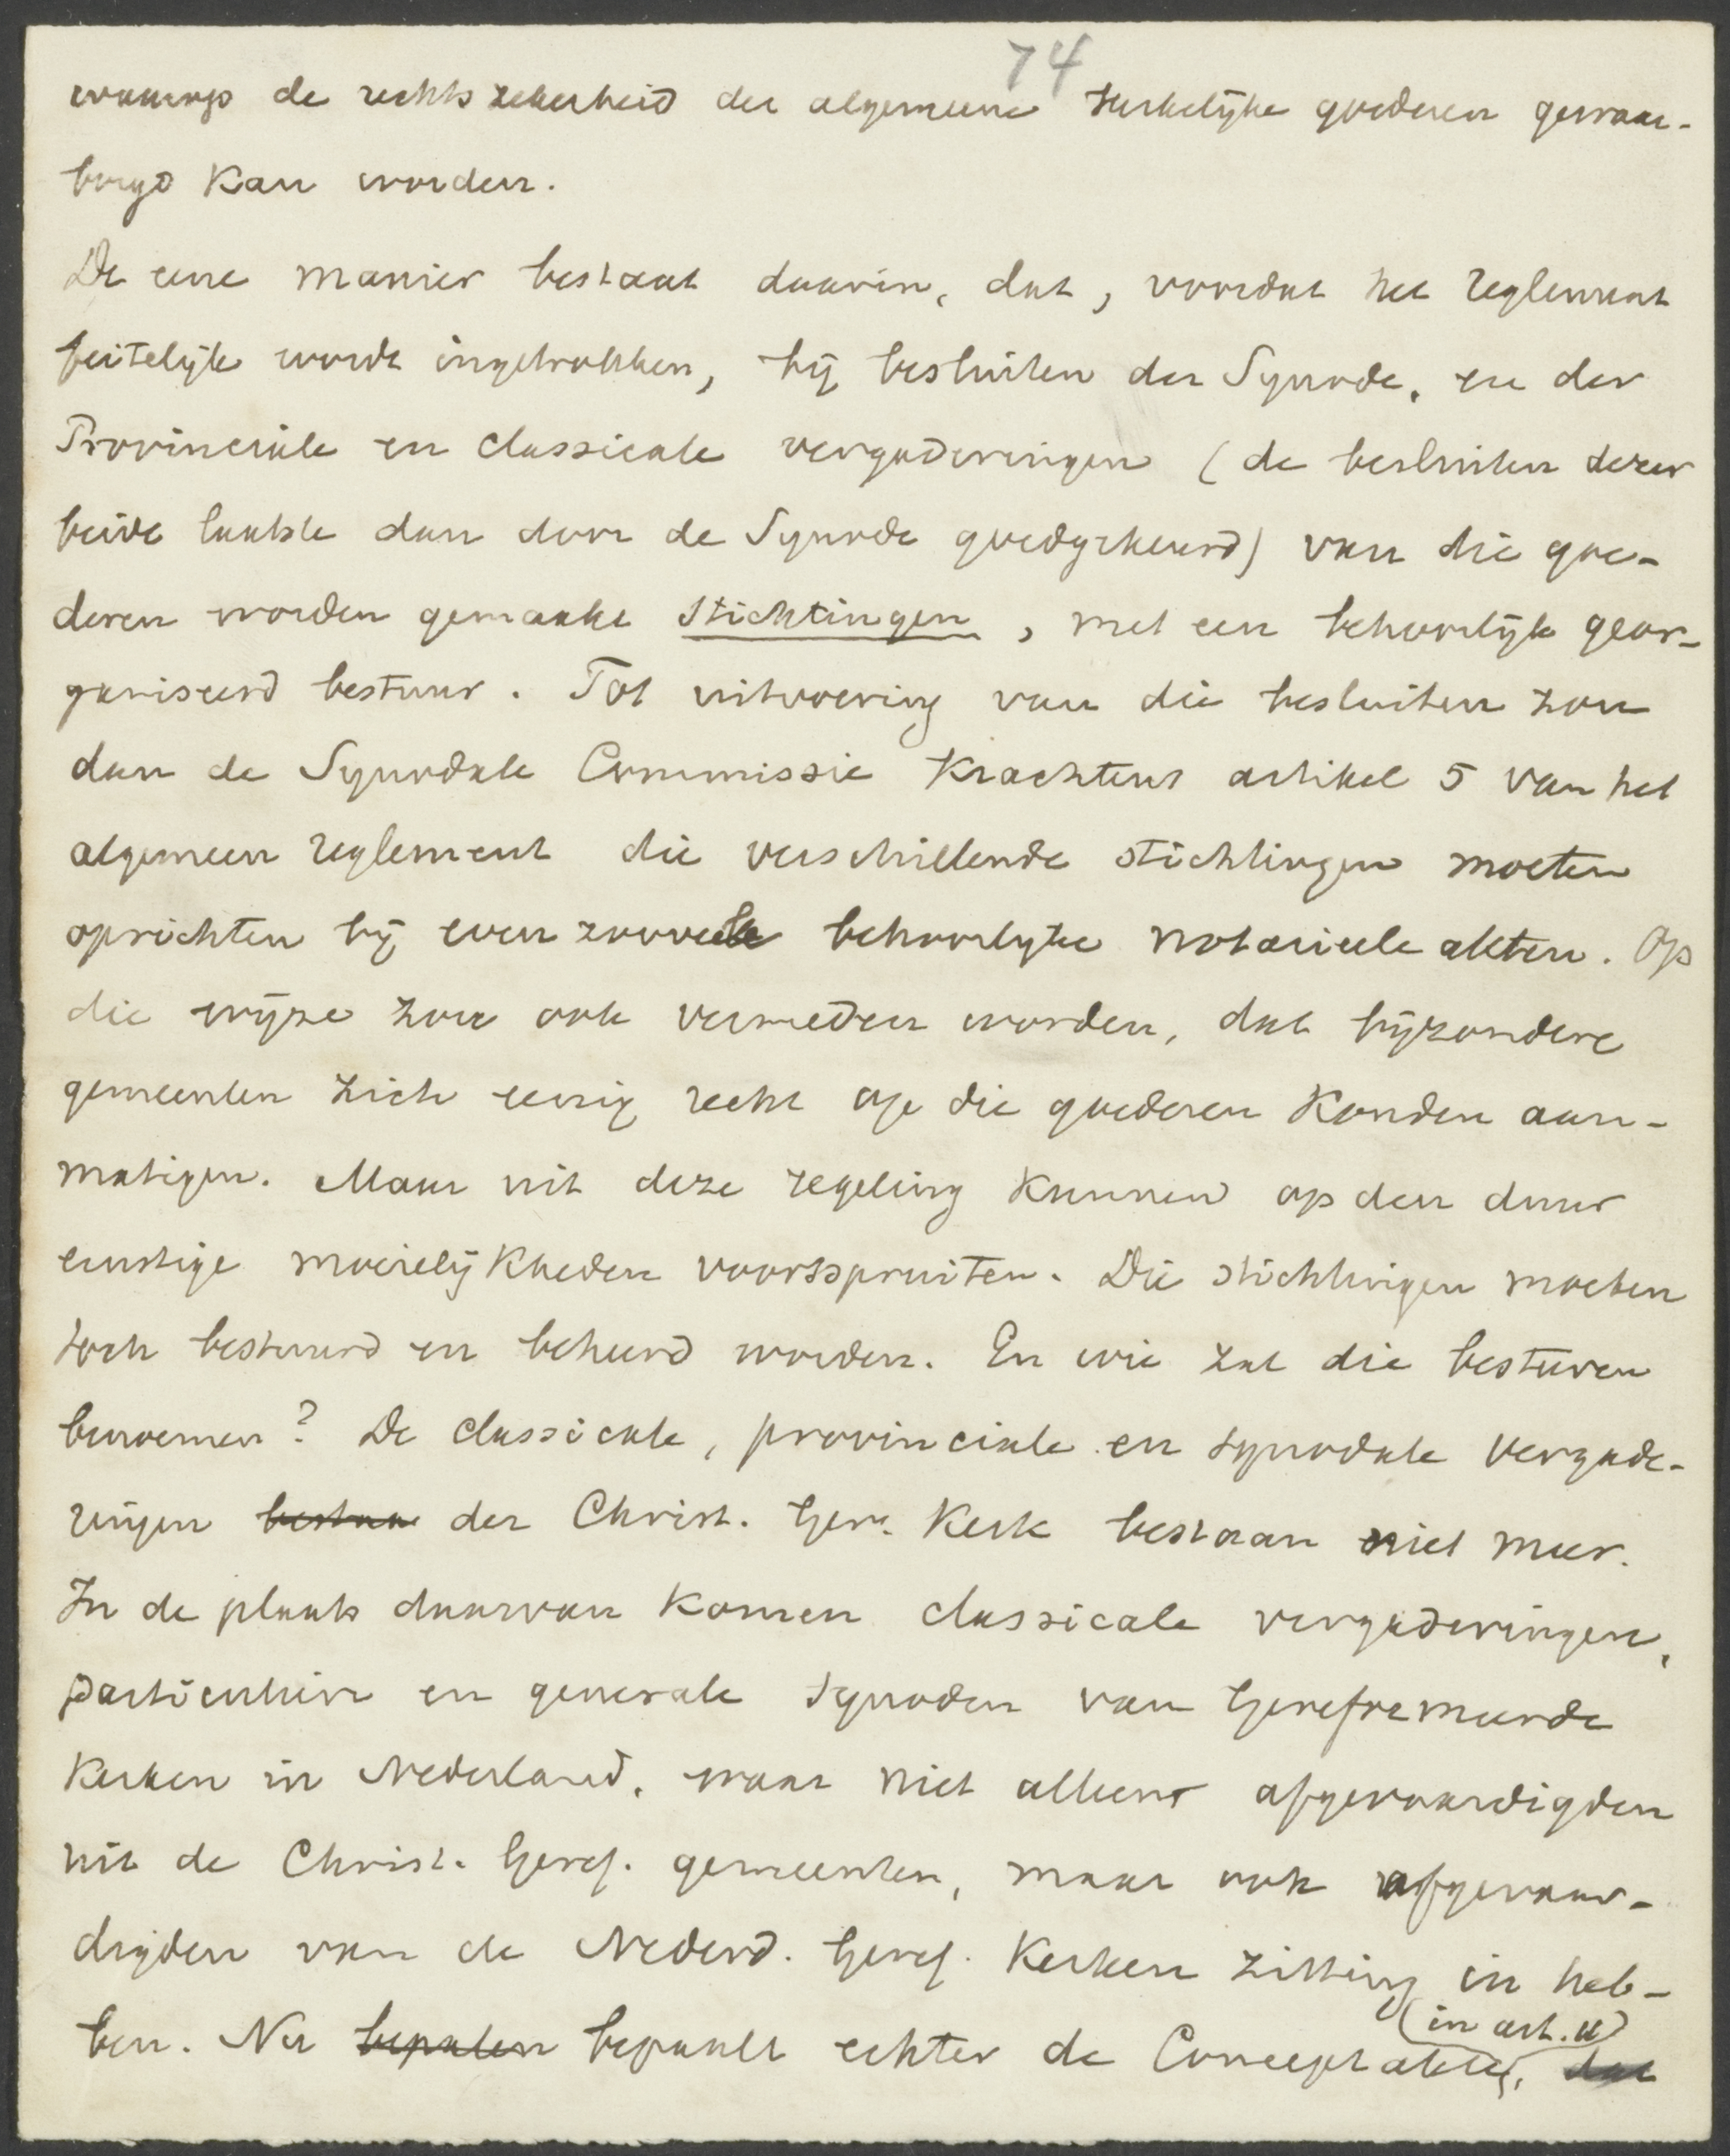 74
waarop de rechtszekerheid der algemeene kerkelijke goederen gewaar-
borgd kan worden.
De eene manier bestaat daarin, dat, voordat het reglement
feitelijk wordt ingetrokken, bij besluiten der Synode, en der
Provinciale en classicale vergaderingen (de besluiten dezer
beide laatste dan door de Synode goedgekeurd) van die goe-
deren worden gemaakt stichtingen, met een behoorlijk geor-
ganiseerd bestuur. Tot uitvoering van die besluiten zou
dan de Synodale Commissie krachtens artikel 5 van het
algemeen reglement die verschillende stichtingen moeten
oprichten bij even zoovele behoorlijke notarieele akten. Op
die wijze zou ook vermeden worden, dat bijzondere
gemeenten zich eenig recht op die goederen konden aan-
matigen. Maar uit deze regeling kunnen op den duur
ernstige moeielijkheden voortspruiten. Die stichtingen moeten
toch bestuurd en beheerd worden. En wie zal die besturen
benoemen? De classicale, provinciale en synodale vergade-
ringen bestaan der Christ. Ger. Kerk bestaan niet meer.
In de plaats daarvan komen classicale vergaderingen,
particuliere en generale synoden van Gereformeerde
Kerken in Nederland, waar niet alleen afgevaardigden
uit de Christ. Geref. gemeenten, maar ook afgevaar-
digden van de Nederd. Geref. Kerken zitting in heb-
(in art. u)
ben. Nu bepalen bepaalt echter de Conceptakte, dat